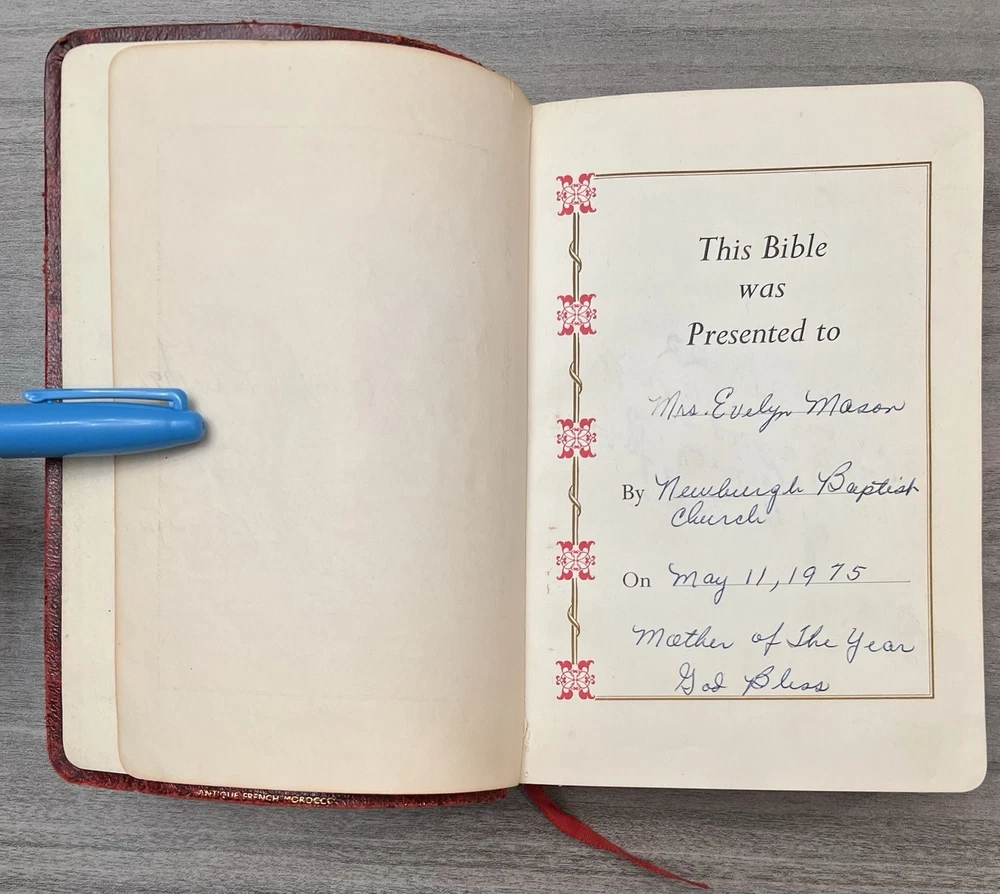 This Bible
was
Presented to
Mrs. Evelyn Mason
By Newburgh Baptist
Church
On May 11, 1975
Mother of The Year
God Bless
ANTIQUE FRENCH MOROCCO